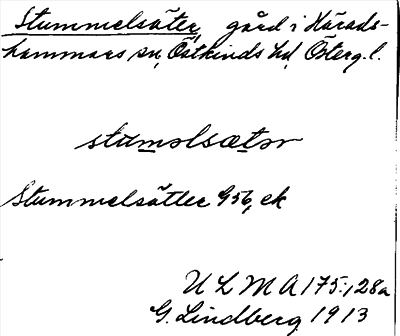 Stummelsäter, gård i Härads-
hammars sn, Östkinds hd, Österg. l.
stumǝlsætǝr
Stummelsätter G56, ek
U L M A 175:128a
G. Lindberg 1913